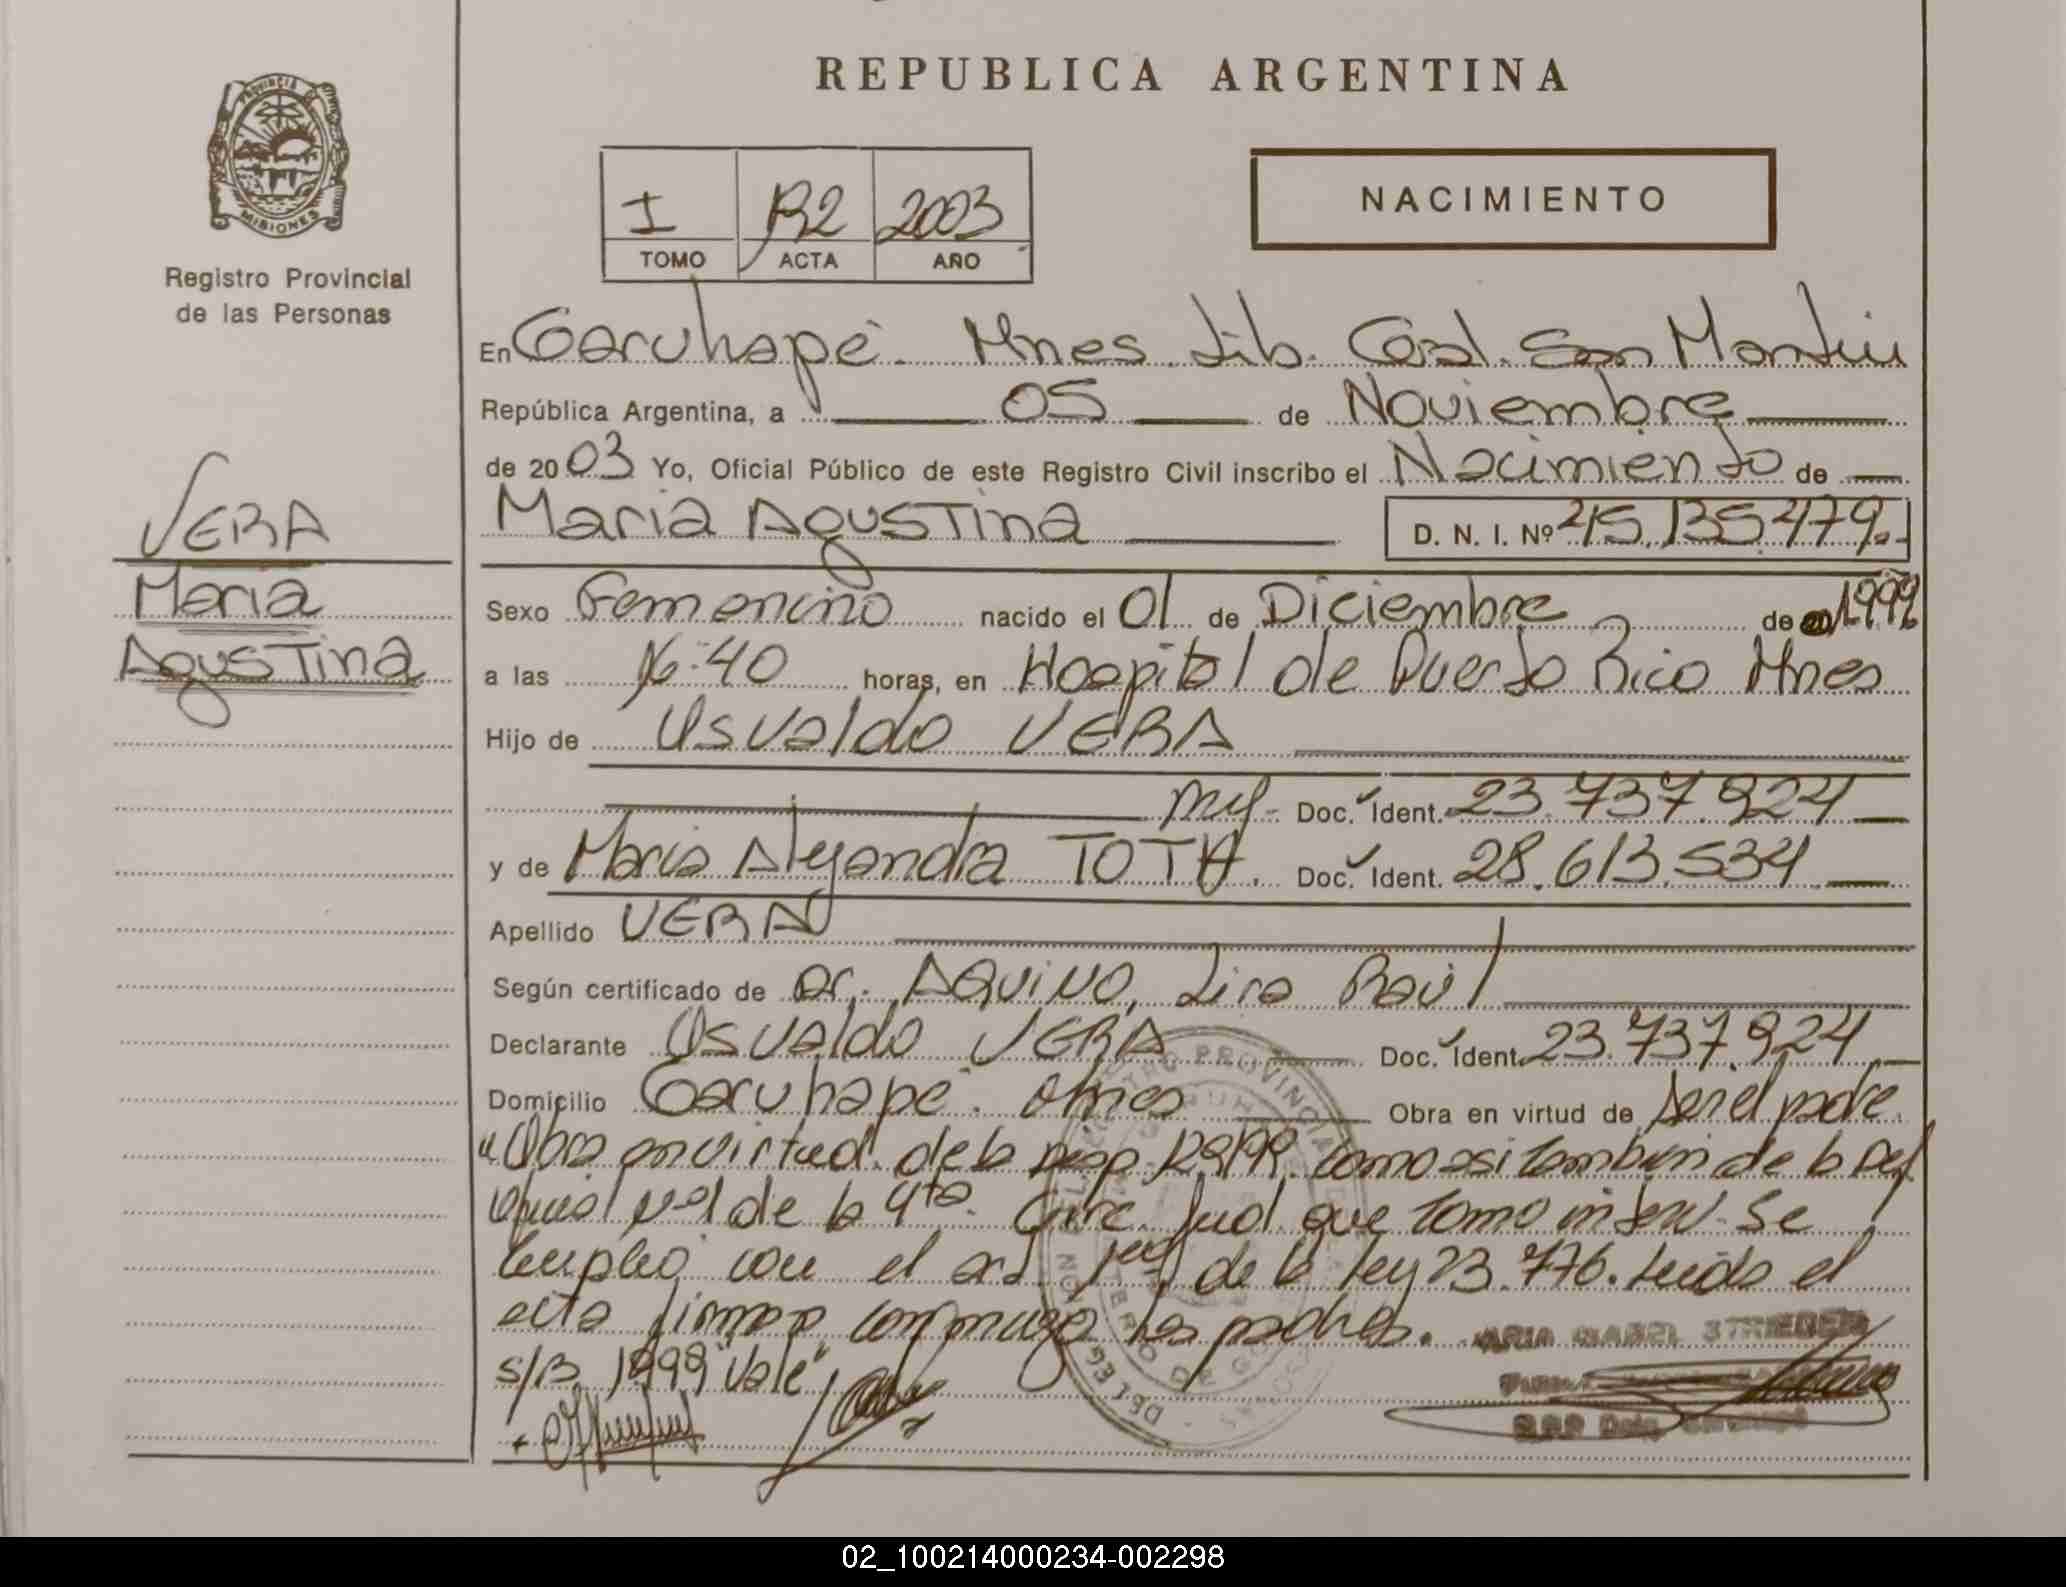 REPUBLICA ARGENTINA
PROVINCIA DE
MISIONES
Registro Provincial
de las Personas
I
2003
TOMO
ACTA
AÑO
NACIMIENTO
VERA
Maria
Agustina
En Garuhapé. Mnes. Lib. Gral. San Martin
República Argentina, a 05 de Noviembre
de 2003 Yo, Oficial Público de este Registro Civil inscribo el Nacimiento de
Maria Agustina D. N. I. Nº 45.135.479.-
Sexo Femenino nacido el 01 de Diciembre de 1999
a las 16:40 horas, en Hospital de Puerto Rico Mnes
Hijo de Osvaldo VERA
Doc. Ident. 23.737.924
y de Maria Alejandra TOTH. Doc. Ident. 28.613.534
Apellido VERA
Según certificado de Dr. AQUINO, Lira Raúl
Declarante Osvaldo VERA Doc. Ident. 23.737.924
Domicilio Garuhapé. Mnes Obra en virtud de ser el padre
"Obra en virtud de la como asi tambien de la
de la 4ta. Circ. Jud que tomo interv. Se
cumplió con el art. 1º de la ley 23.776. Leida el
acta firman conmigo los padres.
s/B 1999 "Vale"
02_100214000234-002298